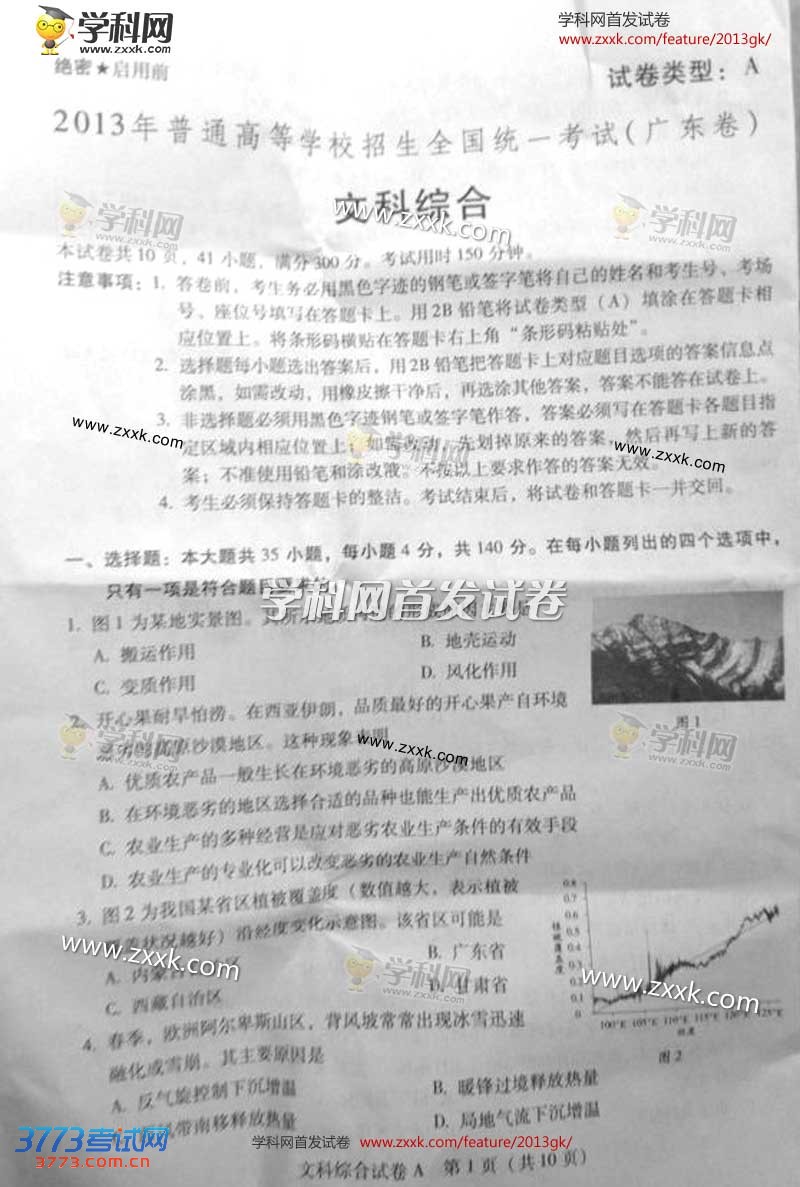 学科网
www.zxxk.com
学科网首发试卷
www.zxxk.com/feature/2013gk/
绝密★启用前
试卷类型：A
2013年普通高等学校招生全国统一考试(广东卷)
学科网
zxxk.com
学科网
zxxk.com
文科综合
www.zxxk.com
本试卷共10页，41小题，满分300分。考试用时150分钟。
注意事项：1. 答卷前，考生务必用黑色字迹的钢笔或签字笔将自己的姓名和考生号、考场
号、座位号填写在答题卡上。用2B铅笔将试卷类型（A）填涂在答题卡相
应位置上。将条形码横贴在答题卡右上角“条形码粘贴处”。
2. 选择题每小题选出答案后，用2B铅笔把答题卡上对应题目选项的答案信息点
涂黑，如需改动，用橡皮擦干净后，再选涂其他答案，答案不能答在试卷上。
3. 非选择题必须用黑色字迹钢笔或签字笔作答，答案必须写在答题卡各题目指
定区域内相应位置上；如需改动，先划掉原来的答案，然后再写上新的答
案；不准使用铅笔和涂改液。不按以上要求作答的答案无效。
www.zxxk.com
学科网
zxxk.com
www.zxxk.com
4. 考生必须保持答题卡的整洁。考试结束后，将试卷和答题卡一并交回。
一、选择题：本大题共35小题，每小题4分，共140分。在每小题列出的四个选项中，
只有一项是符合题目
学科网首发试卷
1. 图1为某地实景图。
A. 搬运作用
B. 地壳运动
C. 变质作用
D. 风化作用
图1
2. 开心果耐旱怕涝。在西亚伊朗，品质最好的开心果产自环境
恶劣的高原沙漠地区。这种现象表明
学科网
zxxk.com
www.zxxk.com
学科网
zxxk.com
A. 优质农产品一般生长在环境恶劣的高原沙漠地区
B. 在环境恶劣的地区选择合适的品种也能生产出优质农产品
C. 农业生产的多种经营是应对恶劣农业生产条件的有效手段
D. 农业生产的专业化可以改变恶劣的农业生产自然条件
3. 图2为我国某省区植被覆盖度（数值越大，表示植被
状况越好）沿经度变化示意图。该省区可能是
www.zxxk.com
学科网
zxxk.com
www.zxxk.com
A. 内蒙古
区
B. 广东省
C. 西藏自治区
D. 甘肃省
0.8
0.7
0.6
0.5
0.4
0.3
0.2
0.1
0
植被覆盖度
100°E 105°E 110°E 115°E 120°E 125°E
经度
图2
4. 春季，欧洲阿尔卑斯山区，背风坡常常出现冰雪迅速
融化或雪崩。其主要原因是
A. 反气旋控制下沉增温
B. 暖锋过境释放热量
风带南移释放热量
D. 局地气流下沉增温
3773考试网
3773.com.cn
学科网首发试卷
www.zxxk.com/feature/2013gk/
文科综合试卷A 第1页（共10页）